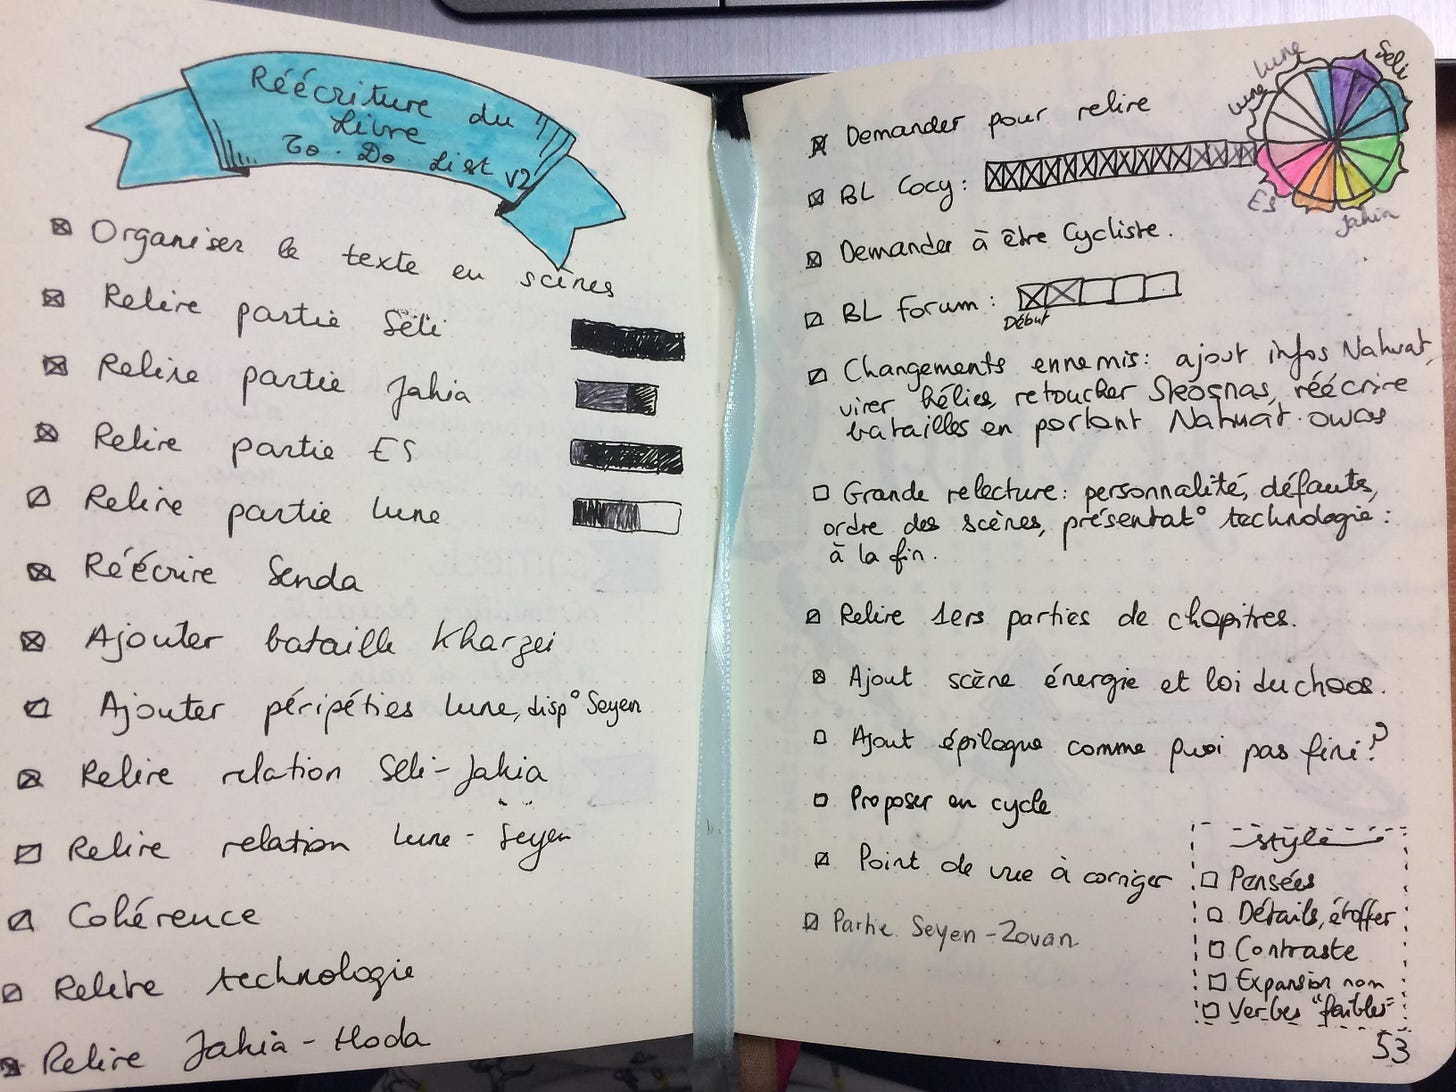 Réécriture du
Livre
To-Do List v2
Organiser le texte en scènes
Relire partie Séli
Relire partie Jahia
Relire partie ES
Relire partie Lune
Réécrire Senda
Ajouter bataille Kharzei
Ajouter péripéties Lune, disp° Seyen
Relire relation Séli-Jahia
Relire relation Lune-Seyen
Cohérence
Relire technologie
Relire Jahia-Hoda
Demander pour relire
BL Cocy:
Demander à être Cycliste.
BL forum:
Début
Changements ennemis: ajout infos Nahuat,
virer hélies, retoucher Skögnas, réécrire
batailles en portant Nahuat-owas
Grande relecture: personnalité, défauts,
ordre des scènes, présentat° technologie:
à la fin.
Relire 1ers parties de chapitres.
Ajout scène énergie et loi du chaos.
Ajout épilogue comme quoi pas fini?
Proposer en cycle
Point de vue à corriger
Partie Seyen-Zovan
Lune
Lune
Séli
ES
Jahia
style
Pensées
Détails, étoffer
Contraste
Expansion nom
Verbes "faibles"
53